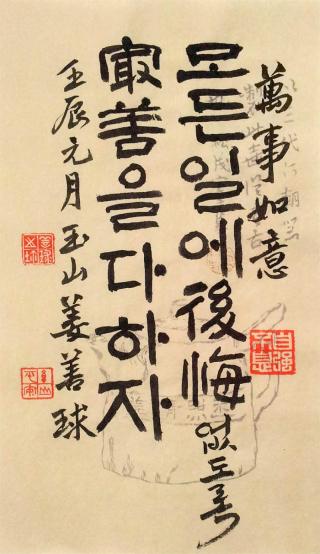 萬事如意
모든일에後悔없도록
最善을다하자
壬辰元月玉山姜善球
自强不息